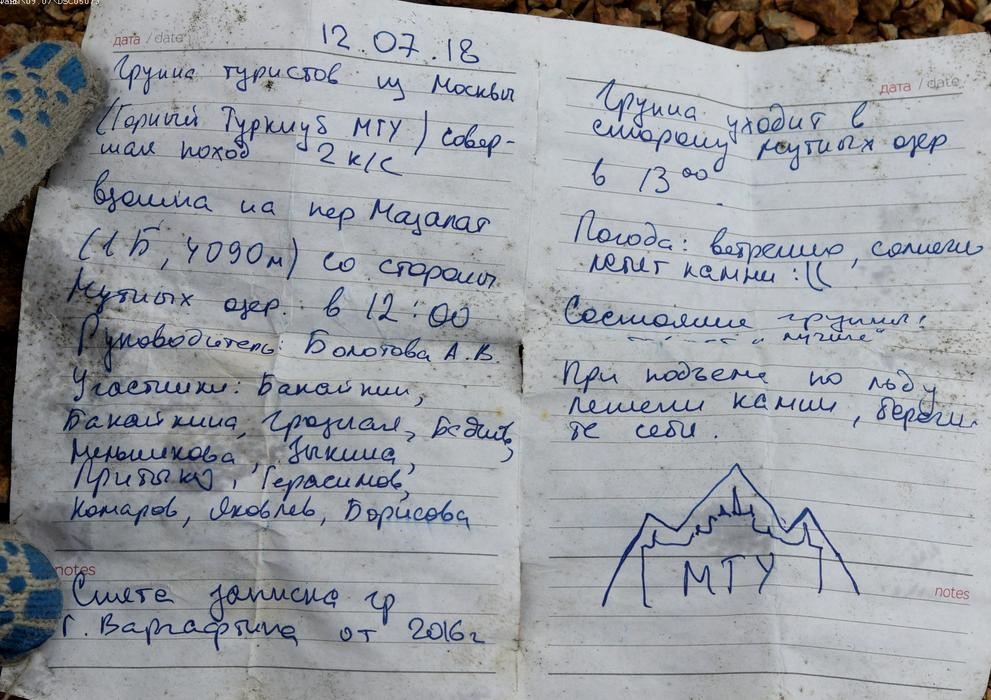 дата / date 12.07.18
Группа туристов из Москвы
(Горный Турклуб МГУ) совер-
шая поход 2 к/с
взошла на пер Мазалат
(1Б, 4090м) со стороны
Мутных озер. в 12:00
Руководитель: Болотова А.В.
Участники: Банайкин,
Банайкина, Грозная,
Меньшикова, Зыкина,
Притыка, Герасимов,
Комаров, Яковлев, Борисова
notes
Снята записка гр
г. Варгафтина от 2016г
дата / date
Группа уходит в
сторону мутных озер
в 13⁰⁰
Погода: ветренно, солнечно
летят камни :((
Состояние группы:
лучше
При подъеме по льду
летели камни, береги-
те себя.
МГУ
notes